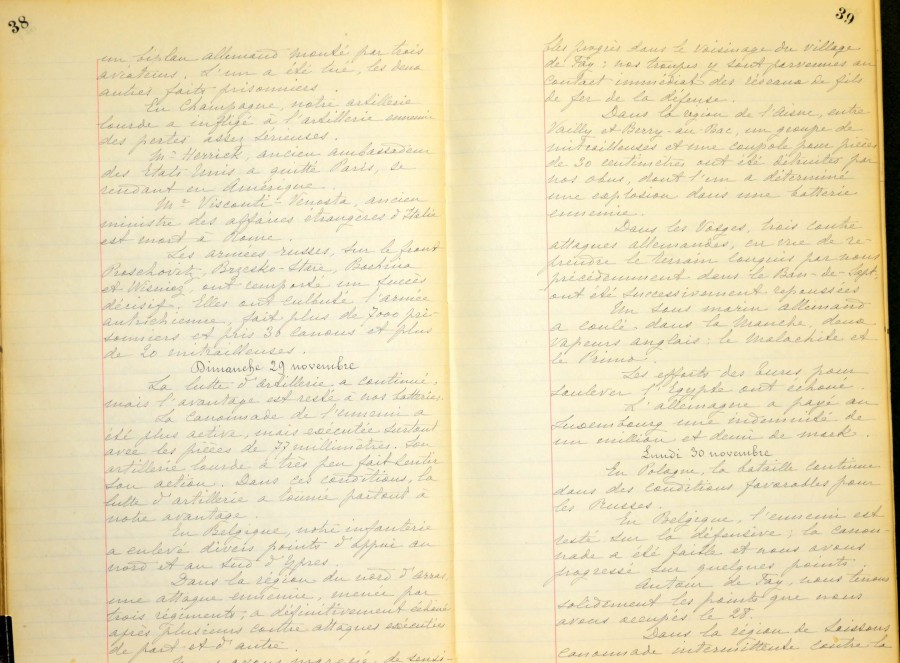 38
un biplan allemand monté par trois
aviateurs. L'un a été tué, les deux
autres faits prisonniers.
En Champagne, notre artillerie
lourde a infligé à l'artillerie ennemie
des pertes assez sérieuses.
Mr Herrick, ancien ambassadeur
des Etats Unis a quitté Paris, se
rendant en Amérique.
Mr Visconti-Venosta, ancien
ministre des affaires étrangères d'Italie
est mort à Rome.
Les armées russes, sur le front
Proschovitz, Brzesko-Stare, Bochina
et Wisniez, ont remporté un succès
décisif. Elles ont culbuté l'armée
autrichienne, fait plus de 7000 pri-
sonniers et pris 30 canons et plus
de 20 mitrailleuses.
Dimanche 29 novembre
La lutte d'artillerie a continué,
mais l'avantage est resté à nos batteries.
La canonnade de l'ennemi a
été plus active, mais exécutée surtout
avec les pièces de 77 millimètres. Son
artillerie lourde a très peu fait sentir
son action. Dans ces conditions, la
lutte d'artillerie a tourné partout à
notre avantage.
En Belgique, notre infanterie
a enlevé divers points d'appui au
nord et au sud d'Ypres.
Dans la région du nord d'arras,
une attaque ennemie, menée par
trois régiments, a définitivement échoué
après plusieurs contre attaques exécutées
de part et d'autre.
Nous avons progressé de sensi-
39
bles progrès dans le voisinage du village
de Fay: nos troupes y sont parvenues au
contact immédiat des réseaux de fils
de fer de la défense.
Dans la région de l'Aisne, entre
Vailly et Berry-au-Bac, un groupe de
mitrailleuses et une coupole pour pièces
de 30 centimètres ont été détruites par
nos obus, dont l'un a déterminé
une explosion dans une batterie
ennemie.
Dans les Vosges, trois contre
attaques allemandes, en vue de re-
prendre le terrain conquis par nous
précédemment dans le Ban-de-Sapt,
ont été successivement repoussées
Un sous marin allemand
a coulé dans la Manche, deux
vapeurs anglais: le Malachite et
le Primo.
Les efforts des turcs pour
soulever l'Egypte ont échoué.
L'allemagne a payé au
Luxembourg une indemnité de
un million et demi de mark.
Lundi 30 novembre
En Pologne, la bataille continue
dans des conditions favorables pour
les Russes.
En Belgique, l'ennemi est
resté sur la défensive; la canon-
nade a été faible et nous avons
progressé sur quelques points.
Autour de Fay, nous tenons
solidement les points que nous
avons occupés le 28.
Dans la région de Soissons
canonnade intermittente contre la